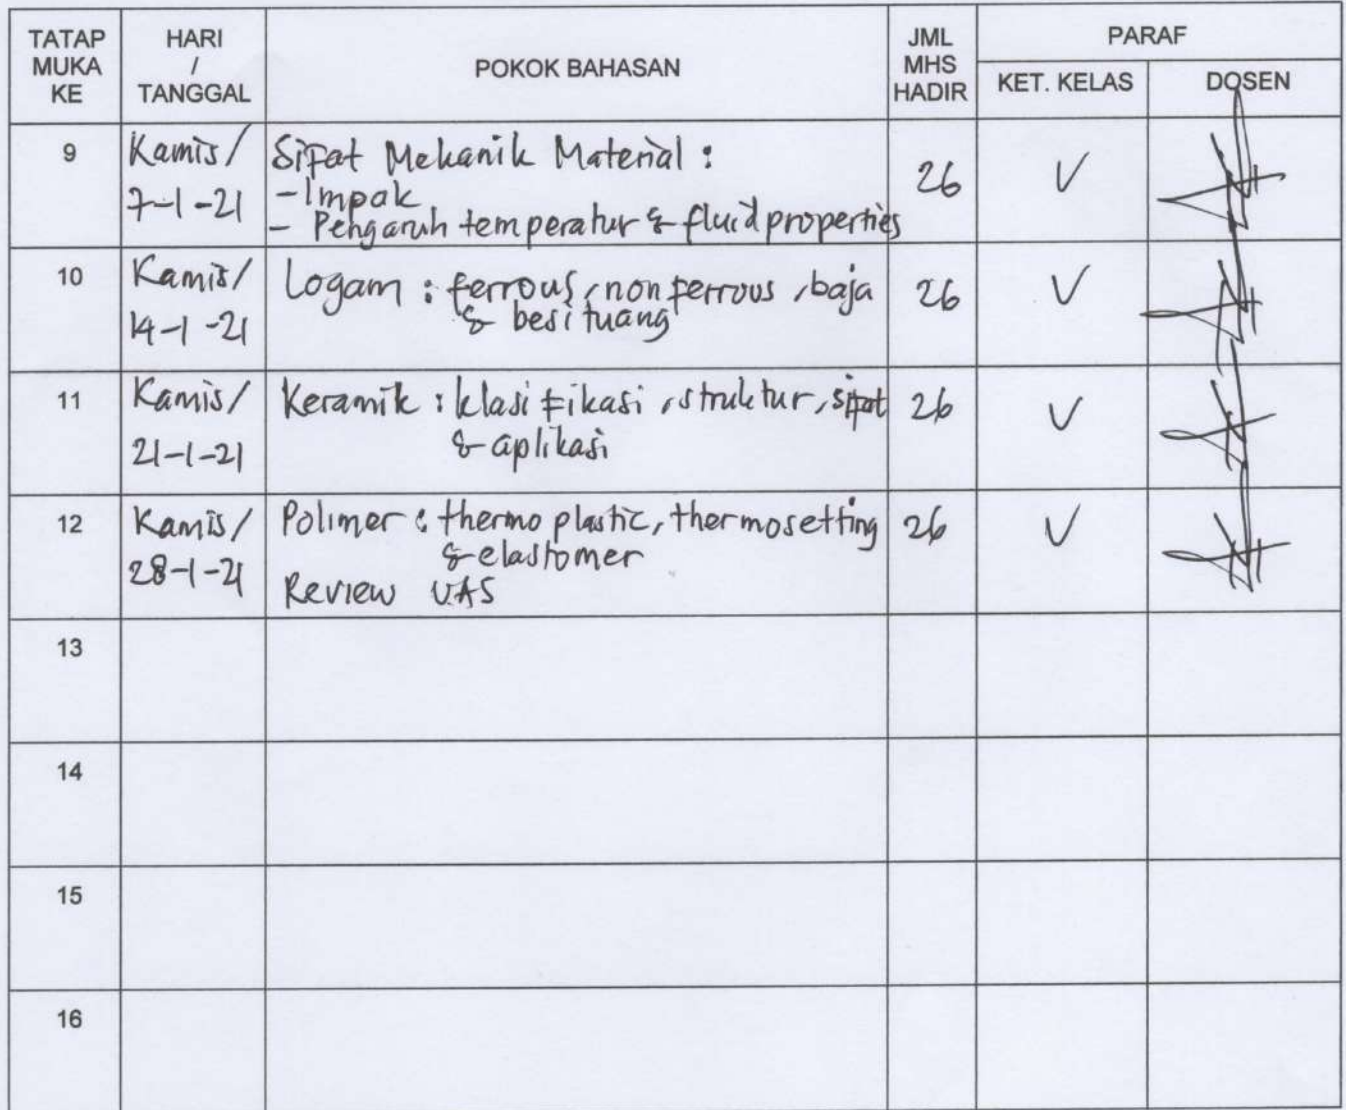 TATAP MUKA KE | HARI / TANGGAL | POKOK BAHASAN | JML MHS HADIR | PARAF
KET. KELAS | DOSEN
9 | Kamis/ 7-1-21 | Sifat Mekanik Material : | 26 | V
- Impak
- Pengaruh temperatur & fluid properties
10 | Kamis/ 14-1-21 | Logam : ferrous, non ferrous, baja | 26 | V
& besi tuang
11 | Kamis/ 21-1-21 | Keramik : klasifikasi, struktur, sifat | 26 | V
& aplikasi
12 | Kamis/ 28-1-21 | Polimer : thermo plastic, thermosetting | 26 | V
& elastomer
Review UAS
13
14
15
16